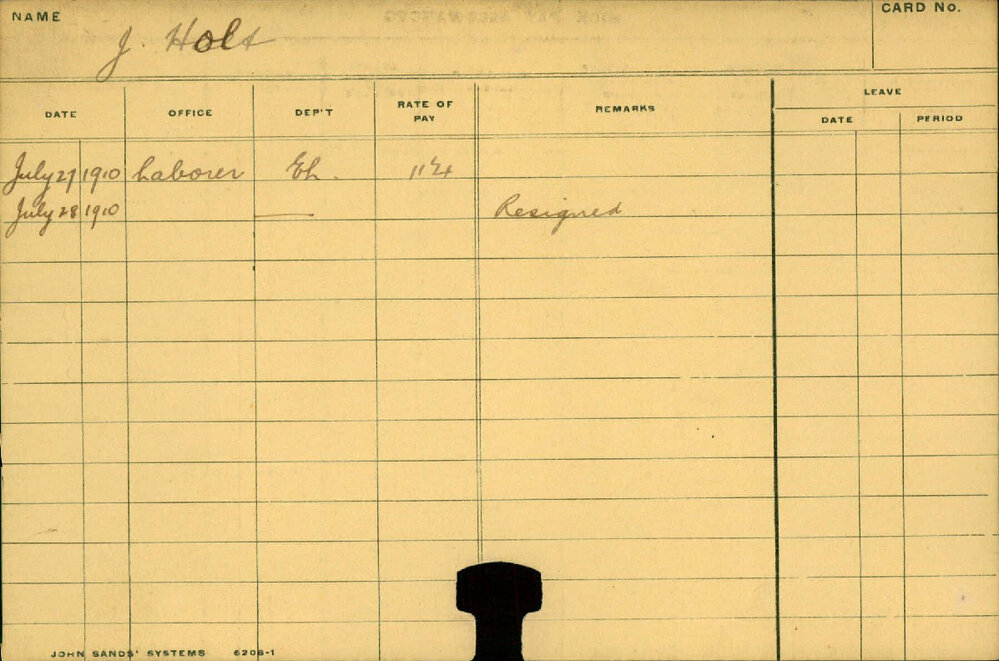 NAME J. Holt CARD No.
DATE OFFICE DEP'T RATE OF PAY REMARKS LEAVE
DATE PERIOD
July 27 1910 Laborer Eh.
July 28 1910 — Resigned
JOHN SANDS' SYSTEMS 6206-1